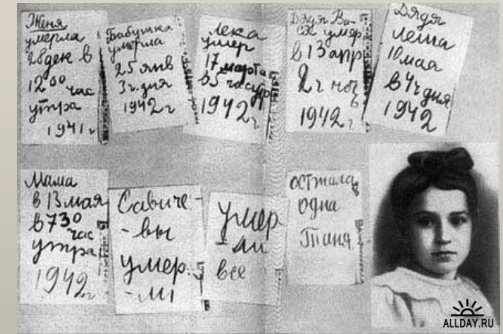 Женя
умерла
28 дек в
12⁰⁰ час
утра
1941 г
Бабушка
умерла
25 янв
3 ч. дня
1942 г
Лека
умер
17 марта
в 5 час утр
1942 г
Дядя Ва-
ся умер
в 13 апр
2 ч ноч
1942 г
Дядя
Леша
10 мая
в 4 ч дня
1942
Мама
в 13 мая
в 7 30
час
утра
1942 г
Савиче-
-вы
умер-
-ли
умер
-ли
все
осталась
одна
Таня
ALLDAY.RU